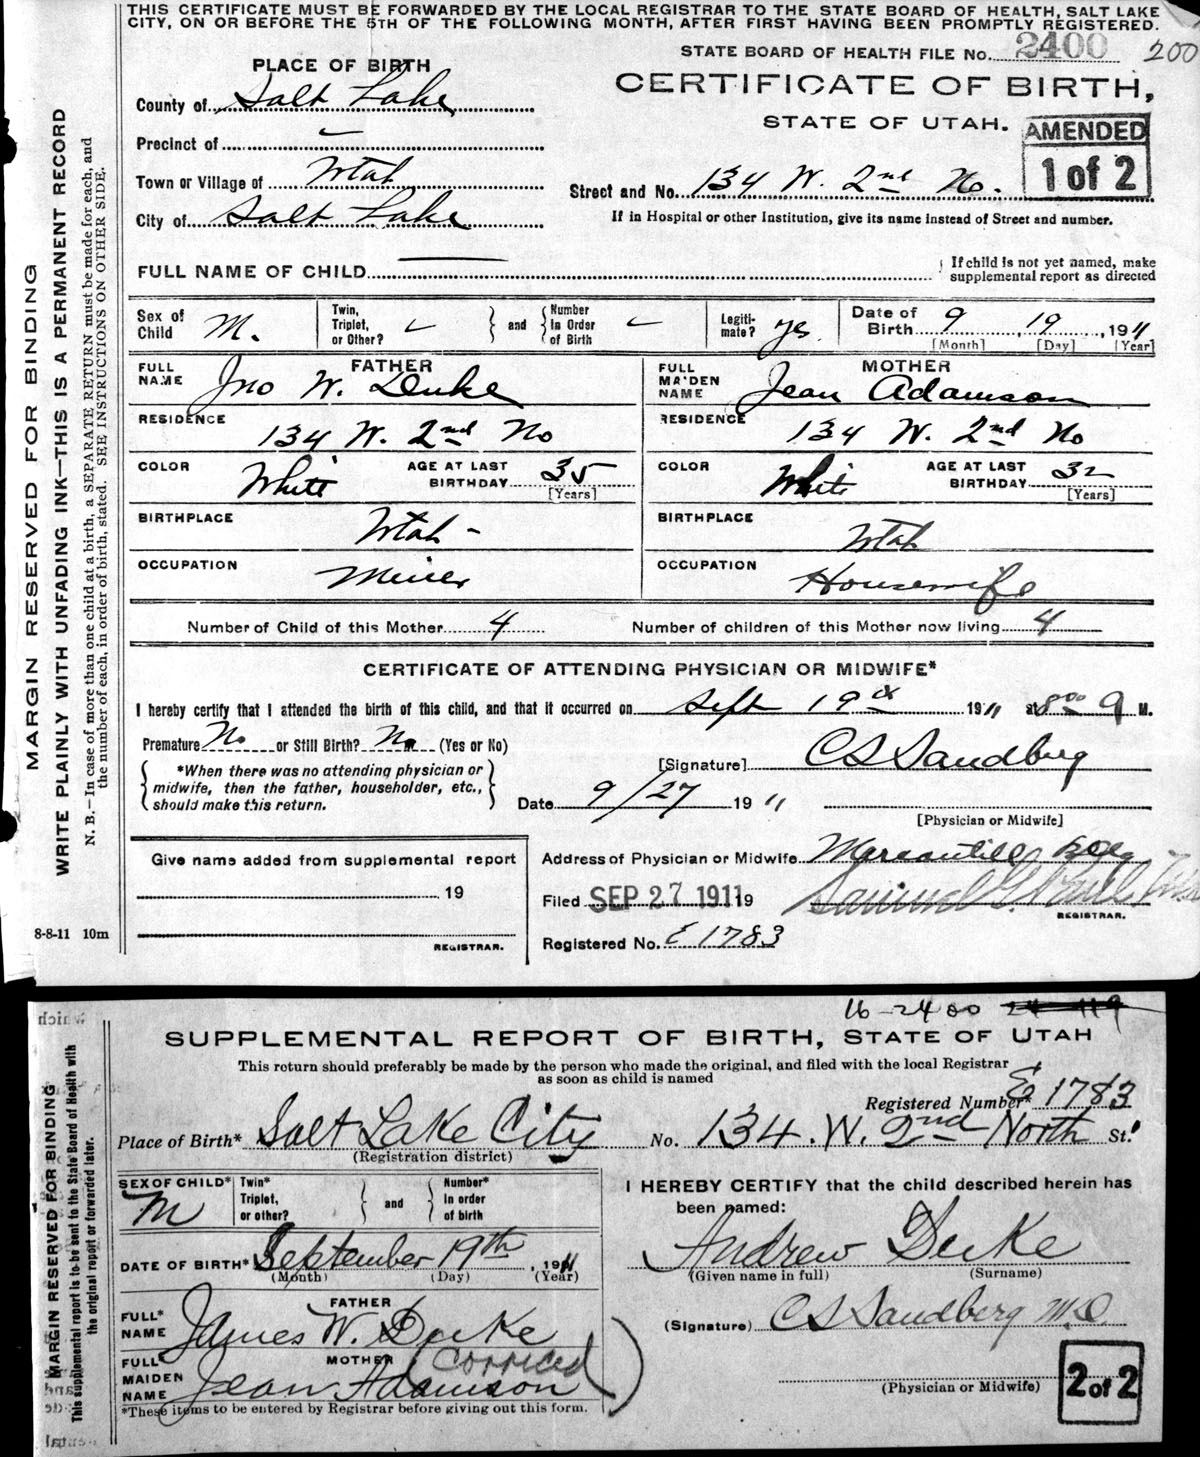 THIS CERTIFICATE MUST BE FORWARDED BY THE LOCAL REGISTRAR TO THE STATE BOARD OF HEALTH, SALT LAKE
CITY, ON OR BEFORE THE 5TH OF THE FOLLOWING MONTH, AFTER FIRST HAVING BEEN PROMPTLY REGISTERED.
STATE BOARD OF HEALTH FILE No. 2400 200
PLACE OF BIRTH
CERTIFICATE OF BIRTH,
County of Salt Lake
STATE OF UTAH.
AMENDED
1 of 2
Precinct of
Town or Village of Utah
Street and No. 134 W. 2nd No.
City of Salt Lake
If in Hospital or other Institution, give its name instead of Street and number.
FULL NAME OF CHILD
If child is not yet named, make
supplemental report as directed
Sex of Child M.
Twin, Triplet, or Other?
and
Number In Order of Birth
Legiti-mate? yes
Date of Birth 9 19, 1911
[Month] [Day] [Year]
FATHER
FULL NAME Jno W. Duke
MOTHER
FULL MAIDEN NAME Jean Adamson
RESIDENCE 134 W. 2nd No
RESIDENCE 134 W. 2nd No
COLOR White AGE AT LAST BIRTHDAY 35 [Years]
COLOR White AGE AT LAST BIRTHDAY 32 [Years]
BIRTHPLACE Utah -
BIRTHPLACE Utah
OCCUPATION Miner
OCCUPATION Housewife
Number of Child of this Mother 4 Number of children of this Mother now living 4
CERTIFICATE OF ATTENDING PHYSICIAN OR MIDWIFE*
I hereby certify that I attended the birth of this child, and that it occurred on Sept 19th 1911 at 8 00 M.
Premature No or Still Birth? No (Yes or No)
[Signature] C S Sandberg
*When there was no attending physician or
midwife, then the father, householder, etc.,
should make this return.
Date 9/27 1911
[Physician or Midwife]
Give name added from supplemental report
Address of Physician or Midwife Mercantile Bldg
19
Filed SEP 27 1911 19
REGISTRAR.
REGISTRAR.
Registered No. E 1783
8-8-11 10m
MARGIN RESERVED FOR BINDING
WRITE PLAINLY WITH UNFADING INK—THIS IS A PERMANENT RECORD
N. B.—In case of more than one child at a birth, a SEPARATE RETURN must be made for each, and
the number of each, in order of birth, stated. SEE INSTRUCTIONS ON OTHER SIDE.
16-2400
SUPPLEMENTAL REPORT OF BIRTH, STATE OF UTAH
This return should preferably be made by the person who made the original, and filed with the local Registrar
as soon as child is named
Registered Number* E 1783
Place of Birth* Salt Lake City No. 134. W. 2nd North St.
(Registration district)
SEX OF CHILD* M
Twin* Triplet, or other?
and
Number* In order of birth
I HEREBY CERTIFY that the child described herein has
been named:
DATE OF BIRTH* September 19th, 1911
(Month) (Day) (Year)
Andrew Duke
(Given name in full) (Surname)
FATHER
FULL* NAME James W. Duke
(Signature) C S Sandberg M.D.
MOTHER (Corrected)
FULL* MAIDEN NAME Jean Adamson
(Physician or Midwife)
2 of 2
*These items to be entered by Registrar before giving out this form.
MARGIN RESERVED FOR BINDING
This supplemental report is to be sent to the State Board of Health with
the original report or forwarded later.